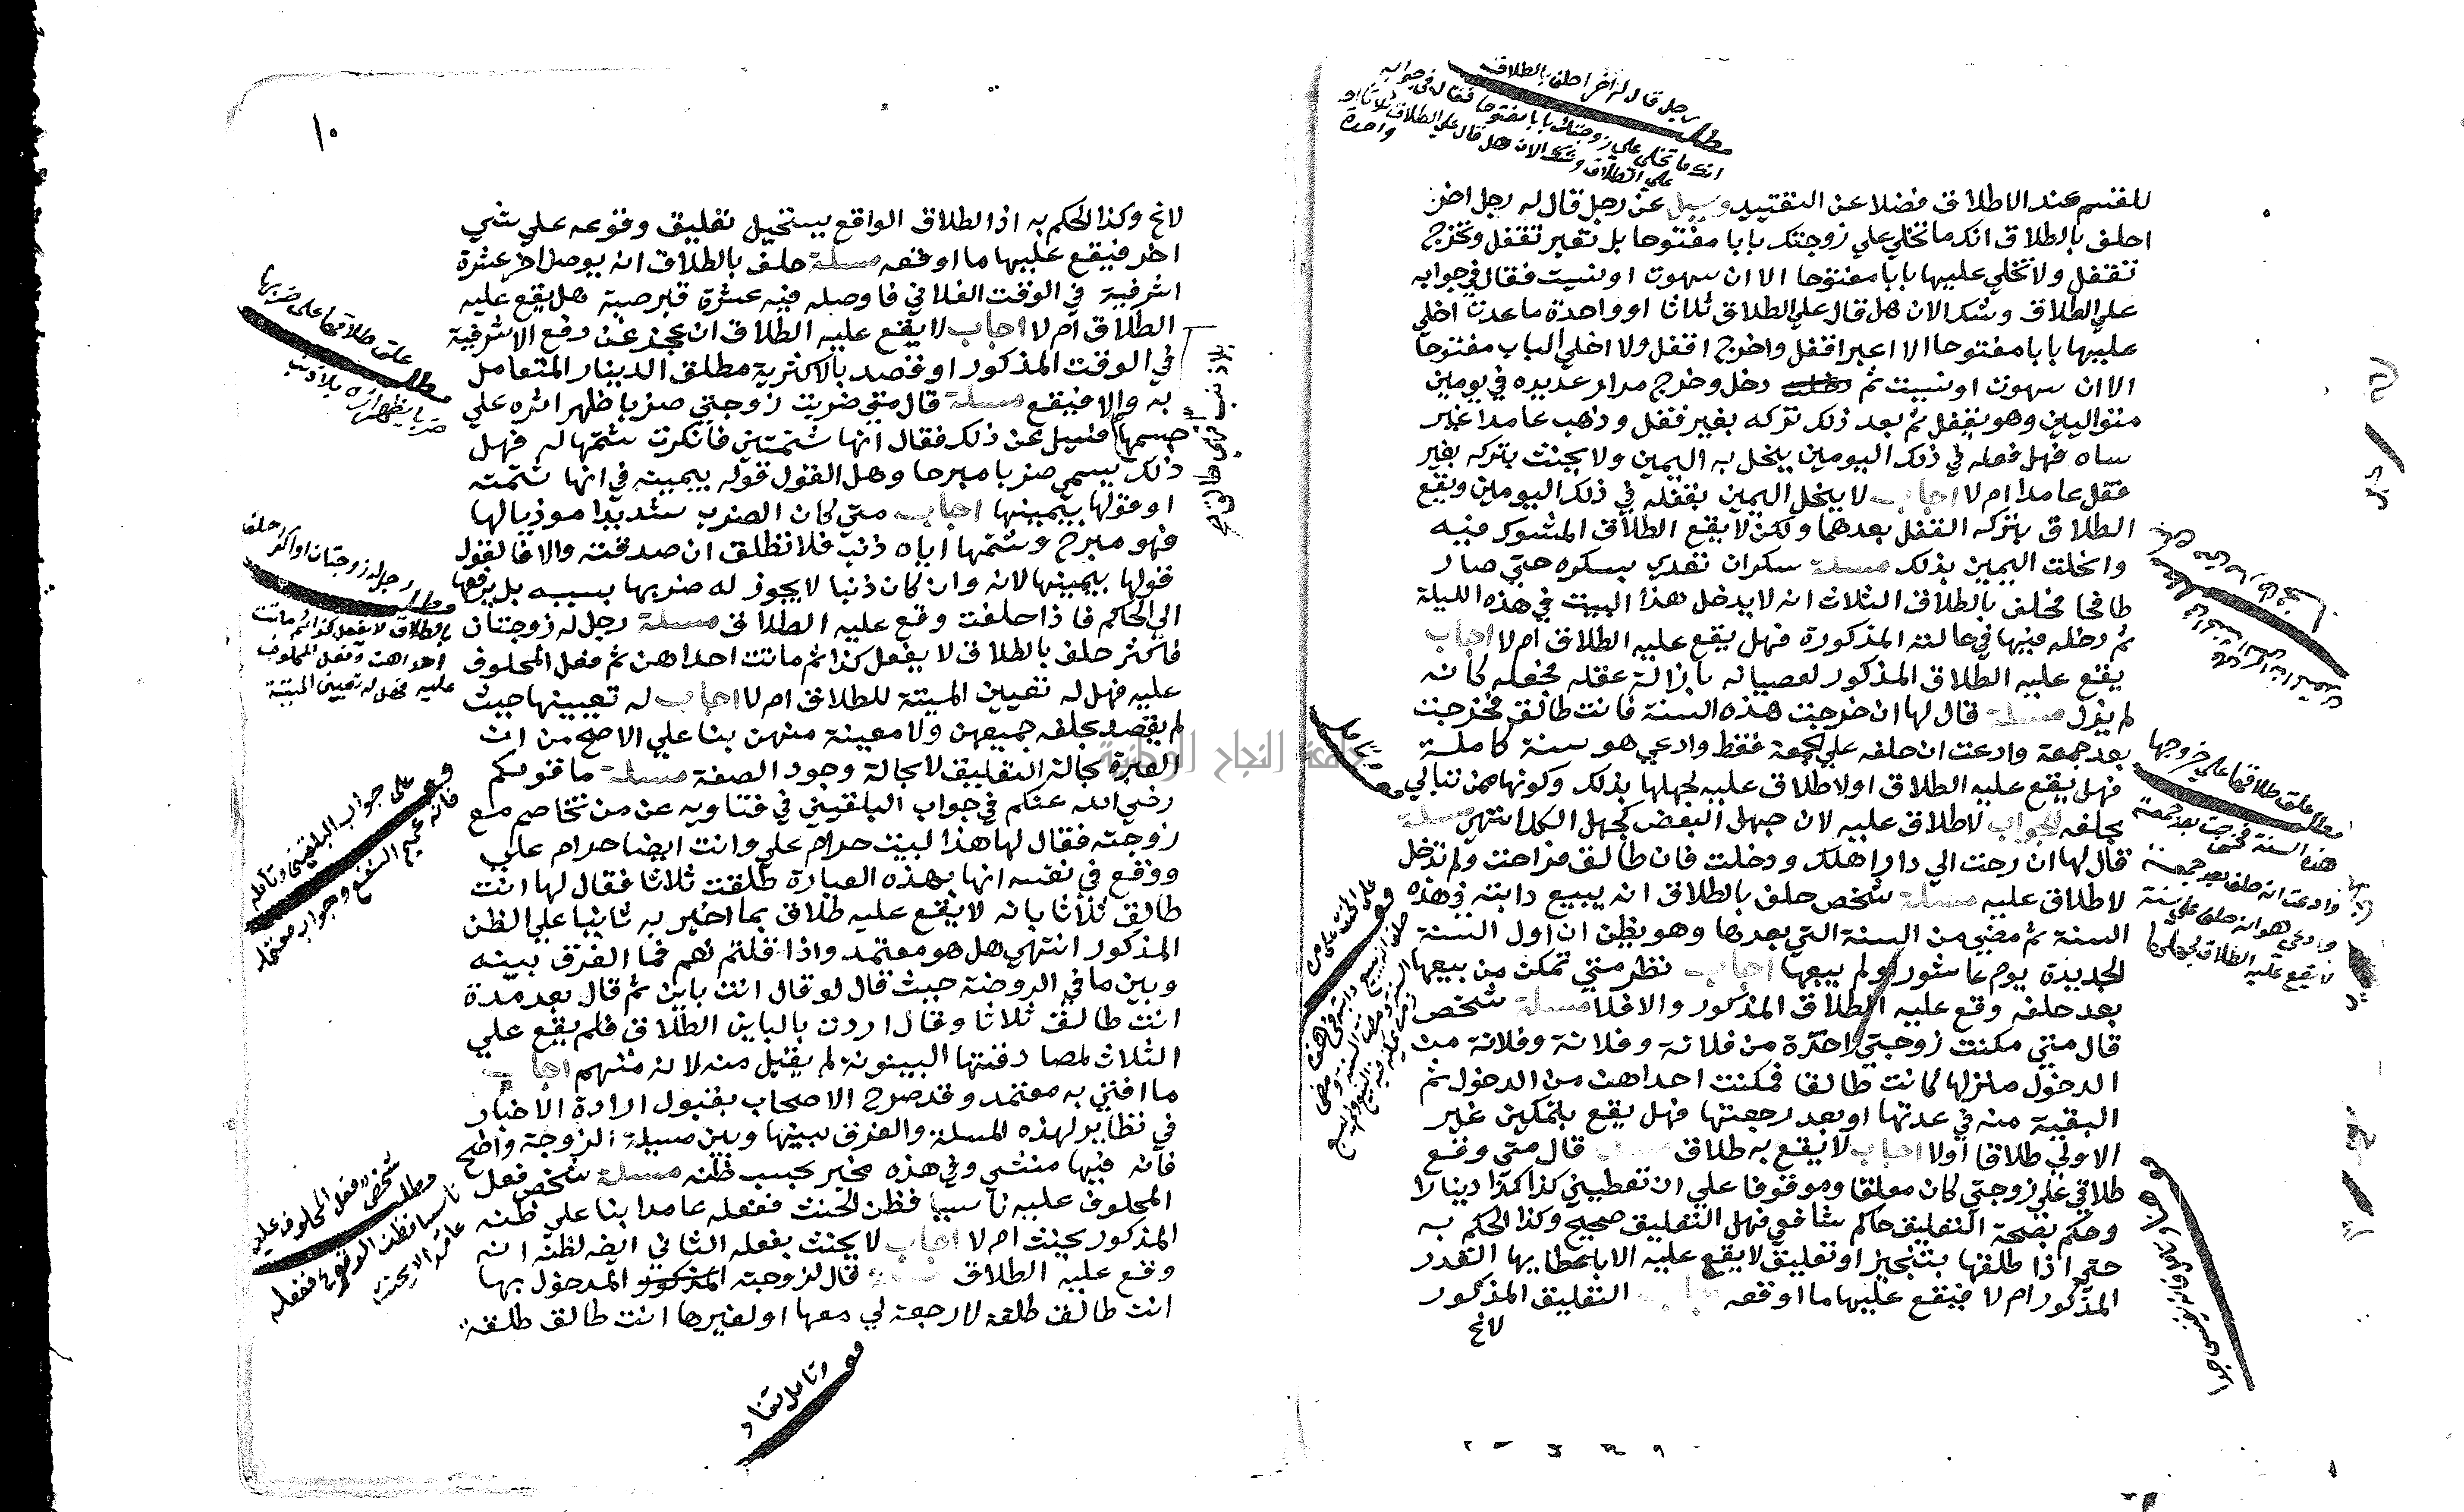 رجل قال له اخر احلف بالطلاق
مطلب
انك ما تخلي علي زوجتك بابا مفتوحا فقال في جوابه
علي الطلاق وشك الان هل قال علي الطلاق ثلاثا او
واحدة
للقسم عند الاطلاق فضلا عن التقييد وسيل عن رجل قال له رجل اخر
احلف بالطلاق انك ما تخلي علي زوجتك بابا مفتوحا بل تعبر تقفل وتخرج
تقفل ولا تخلي عليها بابا مفتوحا الا ان سهوت او نسيت فقال في جوابه
علي الطلاق وشك الان هل قال علي الطلاق ثلاثا او واحدة ما عدت اخلي
عليها بابا مفتوحا الا اعبر اقفل واخرج اقفل ولا اخلي الباب مفتوحا
الا ان سهوت او نسيت ثم دخل وخرج مرار عديده في يومين
متواليين وهو يقفل ثم بعد ذلك تركه بغير قفل وذهب عامدا غير
ساه فهل فعله في ذلك اليومين ينحل به اليمين ولا يحنث بتركه بغير
قفل عامدا ام لا اجاب لا ينحل اليمين بقفله في ذلك اليومين ويقع
الطلاق بتركه القفل بعدهما ولكن لا يقع الطلاق المشكوك فيه
وانحلت اليمين بذلك مسلة سكران تعدي بسكره حتي صار
طافحا فحلف بالطلاق الثلاث انه لا يدخل هذا البيت في هذه الليلة
ثم دخله فيها في حالته المذكورة فهل يقع عليه الطلاق ام لا اجاب
يقع عليه الطلاق المذكور لعصيانه بازالة عقله فجعله كانه
لم يزل مسلة قال لها ان خرجت هذه السنة فانت طالق فخرجت
بعد جمعة وادعت ان حلفه علي جمعة فقط وادعي هو سنة كاملة
فهل يقع عليه الطلاق اولا طلاق عليه لجهلها بذلك وكونها ممن تبالي
بحلفه الجواب لا طلاق عليه لان جهل البعض كجهل الكل انتهي مسلة
قال لها ان رحت الي دار اهلك ودخلت فان طالق فراحت ولم تدخل
لا طلاق عليه مسلة شخص حلف بالطلاق انه يبيع دابته في هذه
السنة ثم مضي من السنة التي بعدها وهو يظن ان اول السنة
الجديدة يوم عاشورا ولم يبيعها اجاب نظر متي تمكن من بيعها
بعد حلفه وقع عليه الطلاق المذكور والا فلا مسلة شخص
قال متي مكنت زوجتي احترة من فلانة وفلانة وفلانة من
الدخول منزلها كانت طالقا فمكنت احداهن من الدخول ثم
البقية منه في عدتها او بعد رجعتها فهل يقع بتمكين غير
الاولي طلاقا اولا اجاب لا يقع به طلاق قال متي وقع
طلاقي علي زوجتي كان معلقا وموقوفا علي ان تعطيني كذا كذا دينارا
وحكم بصحة التعليق حاكم شافعي فهل التعليق صحيح وكذا الحكم به
حتي اذا طلقها بتنجيز او تعليق لا يقع عليه الا باعطايها القدر
المذكور ام لا فيقع عليها ما اوقعه اجاب التعليق المذكور
لاغ
مطلب علق طلاقها علي خروجها
هذه السنة فخرجت بعد جمعة
وادعت انه حلف بعد جمعة
وادعي هو انه حلف علي سنة
لا يقع عليه الطلاق لجهلها
جامعة النجاح الوطنية
١٠
لاغ وكذا الحكم به اذ الطلاق الواقع يستحيل تعليق وقوعه علي شي
اخر فيقع عليها ما اوقعه مسلة حلف بالطلاق انه يوصل اخر عشرة
اشرفية في الوقت الفلاني فاوصله فيه عشرة قبرصية هل يقع عليه
الطلاق ام لا اجاب لا يقع عليه الطلاق ان عجز عن دفع الاشرفية
في الوقت المذكور او قصد بالاكثرية مطلق الدينار المتعامل
به والا فيقع مسلة قال متي ضربت زوجتي ضربا ظهر اثره علي
جسمها فسيل عن ذلك فقال انها شتمتني فانكرت شتمها له فهل
ذلك يسمي ضربا مبرحا وهل القول قوله بيمينه في انها شتمته
او قولها بيمينها اجاب متي كان الضرب شديدا موذيا لها
فهو مبرح وشتمها اياه ذنب فلا تطلق ان صدقته والا فالقول
قولها بيمينها لانه وان كان ذنبا لا يجوز له ضربها بسببه بل يرفعها
الي الحاكم فاذا حلفت وقع عليه الطلاق مسلة رجل له زوجتان
فاكثر حلف بالطلاق لا يفعل كذا ثم ماتت احداهن ثم فعل المحلوف
عليه فهل له تعيين الميتة للطلاق ام لا اجاب له تعيينها حيث
لم يقصد بحلفه جميعهن ولا معينة منهن بنا علي الاصح من ان
العبرة بحالة التعليق لا بحالة وجود الصفة مسلة ما قولكم
رضي الله عنكم في جواب البلقيني في فتاويه عن من تخاصم مع
زوجته فقال لها هذا لبيت حرام علي وانت ايضا حرام علي
ووقع في نفسه انها بهذه العبارة طلقت ثلاثا فقال لها انت
طالق ثلاثا بانه لا يقع عليه طلاق بما اخبر به ثانيا علي الظن
المذكور انتهي هل هو معتمد واذا قلتم نعم فما الفرق بينه
وبين ما في الروضة حيث قال لو قال انت باين ثم قال بعد مدة
انت طالق ثلاثا وقال اردت بالباين الطلاق فلم يقع علي
الثلاث لمصادفتها البينونة لم يقبل منه لانه متهم اجاب
ما افتي به معتمد وقد صرح الاصحاب بقبول ارادة الاخبار
في نظاير لهذه المسلة والفرق بينها وبين مسيلة الزوجة واضح
فانه فيها منشي وفي هذه مخبر بحسب ظنه مسلة شخص فعل
المحلوف عليه ناسيا فظن الحنث ففعله عامدا بنا علي ظنه
المذكور يحنث ام لا اجاب لا يحنث بفعله الثاني ايضه لظنه انه
وقع عليه الطلاق مسلة قال لزوجته المذكور المدخول بها
انت طالق طلقة لا رجعة لي معها او لغيرها انت طالق طلقة
مطلب علق طلاقها على ضربها
ضربا يظهر اثره بلا ذنب
مطلب رجل له زوجتان او اكثر حلف
بالطلاق لا يفعل كذا ثم ماتت
احداهن وفعل المحلوف
عليه فهل له تعيين الميتة
قف على جواب البلقيني وتامله
فانه عميم النفع وجواب معتمد
مطلب شخص فعل المحلوف عليه
ناسيا فظن الوقوع ففعله
عامدا لا يحنث
قف وتامل